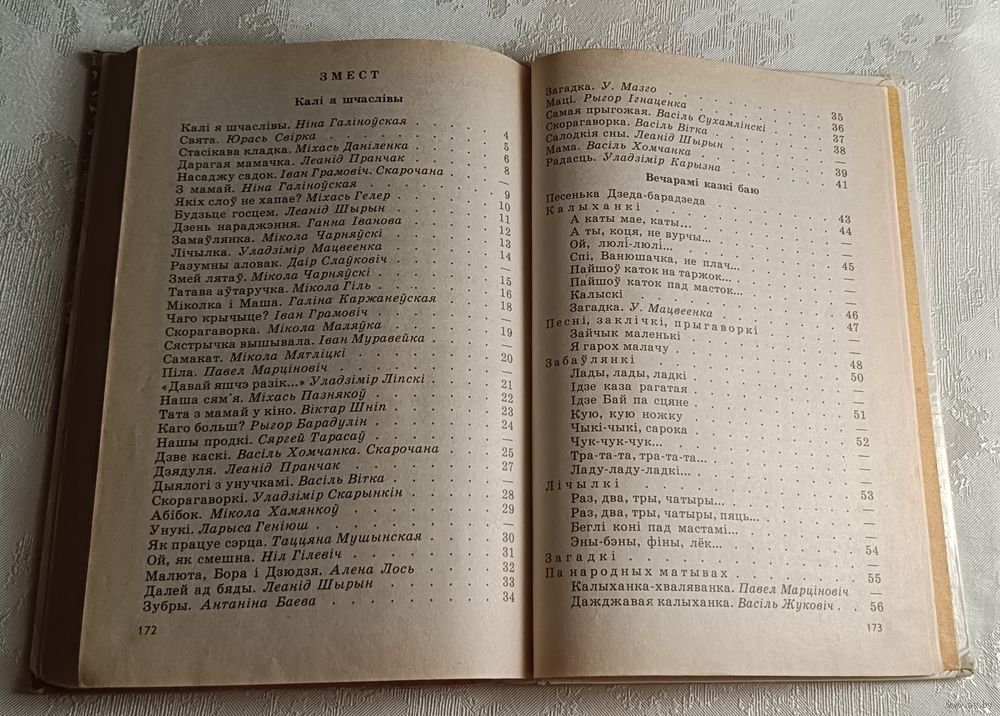 ЗМЕСТ
Калі я шчаслівы
Калі я шчаслівы. Ніна Галіноўская . . . . 4
Свята. Юрась Свірка . . . . 5
Стасікава кладка. Міхась Даніленка . . . . 6
Дарагая мамачка. Леанід Пранчак . . . . 8
Насаджу садок. Іван Грамовіч. Скарочана . . . . —
З мамай. Ніна Галіноўская . . . . 9
Якіх слоў не хапае? Міхась Гелер . . . . 10
Будзьце госцем. Леанід Шырын . . . . 11
Дзень нараджэння. Ганна Іванова . . . . 12
Замаўлянка. Мікола Чарняўскі . . . . 13
Лічылка. Уладзімір Мацвеенка . . . . 14
Разумны аловак. Даір Слаўковіч . . . . —
Змей лятаў. Мікола Чарняўскі . . . . 15
Татава аўтаручка. Мікола Гіль . . . . 16
Міколка і Маша. Галіна Каржанеўская . . . . 18
Чаго крычыце? Іван Грамовіч . . . . —
Скорагаворка. Мікола Маляўка . . . . 19
Сястрычка вышывала. Іван Муравейка . . . . —
Самакат. Мікола Мятліцкі . . . . 20
Піла. Павел Марціновіч . . . . —
«Давай яшчэ разік...» Уладзімір Ліпскі . . . . 21
Наша сям'я. Міхась Пазнякоў . . . . 22
Тата з мамай у кіно. Віктар Шніп . . . . 23
Каго больш? Рыгор Барадулін . . . . 24
Нашы продкі. Сяргей Тарасаў . . . . —
Дзве каскі. Васіль Хомчанка. Скарочана . . . . 25
Дзядуля. Леанід Пранчак . . . . 27
Дыялогі з унучкамі. Васіль Вітка . . . . —
Скорагаворкі. Уладзімір Скарынкін . . . . 28
Абібок. Мікола Хамянкоў . . . . 29
Унукі. Ларыса Геніюш . . . . —
Як працуе сэрца. Таццяна Мушынская . . . . 30
Ой, як смешна. Ніл Гілевіч . . . . 31
Малюта, Бора і Дзюдзя. Алена Лось . . . . 32
Далей ад бяды. Леанід Шырын . . . . 33
Зубры. Антаніна Баева . . . . 34
172
Загадка. У. Мазго . . . . 35
Маці. Рыгор Ігнаценка . . . . 36
Самая прыгожая. Васіль Сухамлінскі . . . . 37
Скорагаворка. Васіль Вітка . . . . 38
Салодкія сны. Леанід Шырын . . . . —
Мама. Васіль Хомчанка . . . . 39
Радасць. Уладзімір Карызна . . . . 41
Вечарамі казкі баю
Песенька Дзеда-барадзеда . . . . 43
Калыханкі . . . . 44
А каты мае, каты... . . . . —
А ты, коця, не вурчы... . . . . —
Ой, люлі-люлі... . . . . 45
Спі, Ванюшачка, не плач... . . . . —
Пайшоў каток на таржок... . . . . —
Пайшоў каток пад масток... . . . . —
Калыскі . . . . 46
Загадка. У. Мацвеенка . . . . 47
Песні, заклічкі, прыгаворкі . . . . —
Зайчык маленькі . . . . —
Я гарох малачу . . . . 48
Забаўлянкі . . . . 50
Лады, лады, ладкі . . . . —
Ідзе каза рагатая . . . . —
Ідзе Бай па сцяне . . . . 51
Кую, кую ножку . . . . —
Чыкі-чыкі, сарока . . . . 52
Чук-чук-чук... . . . . —
Тра-та-та, тра-та-та... . . . . —
Ладу-ладу-ладкі... . . . . —
Лічылкі . . . . 53
Раз, два, тры, чатыры... . . . . —
Раз, два, тры, чатыры, пяць... . . . . —
Беглі коні пад мастамі... . . . . —
Эны-бэны, фіны, лёк... . . . . 54
Загадкі . . . . —
Па народных матывах . . . . 55
Калыханка-хваляванка. Павел Марціновіч —
Дажджавая калыханка. Васіль Жуковіч . . 56
173